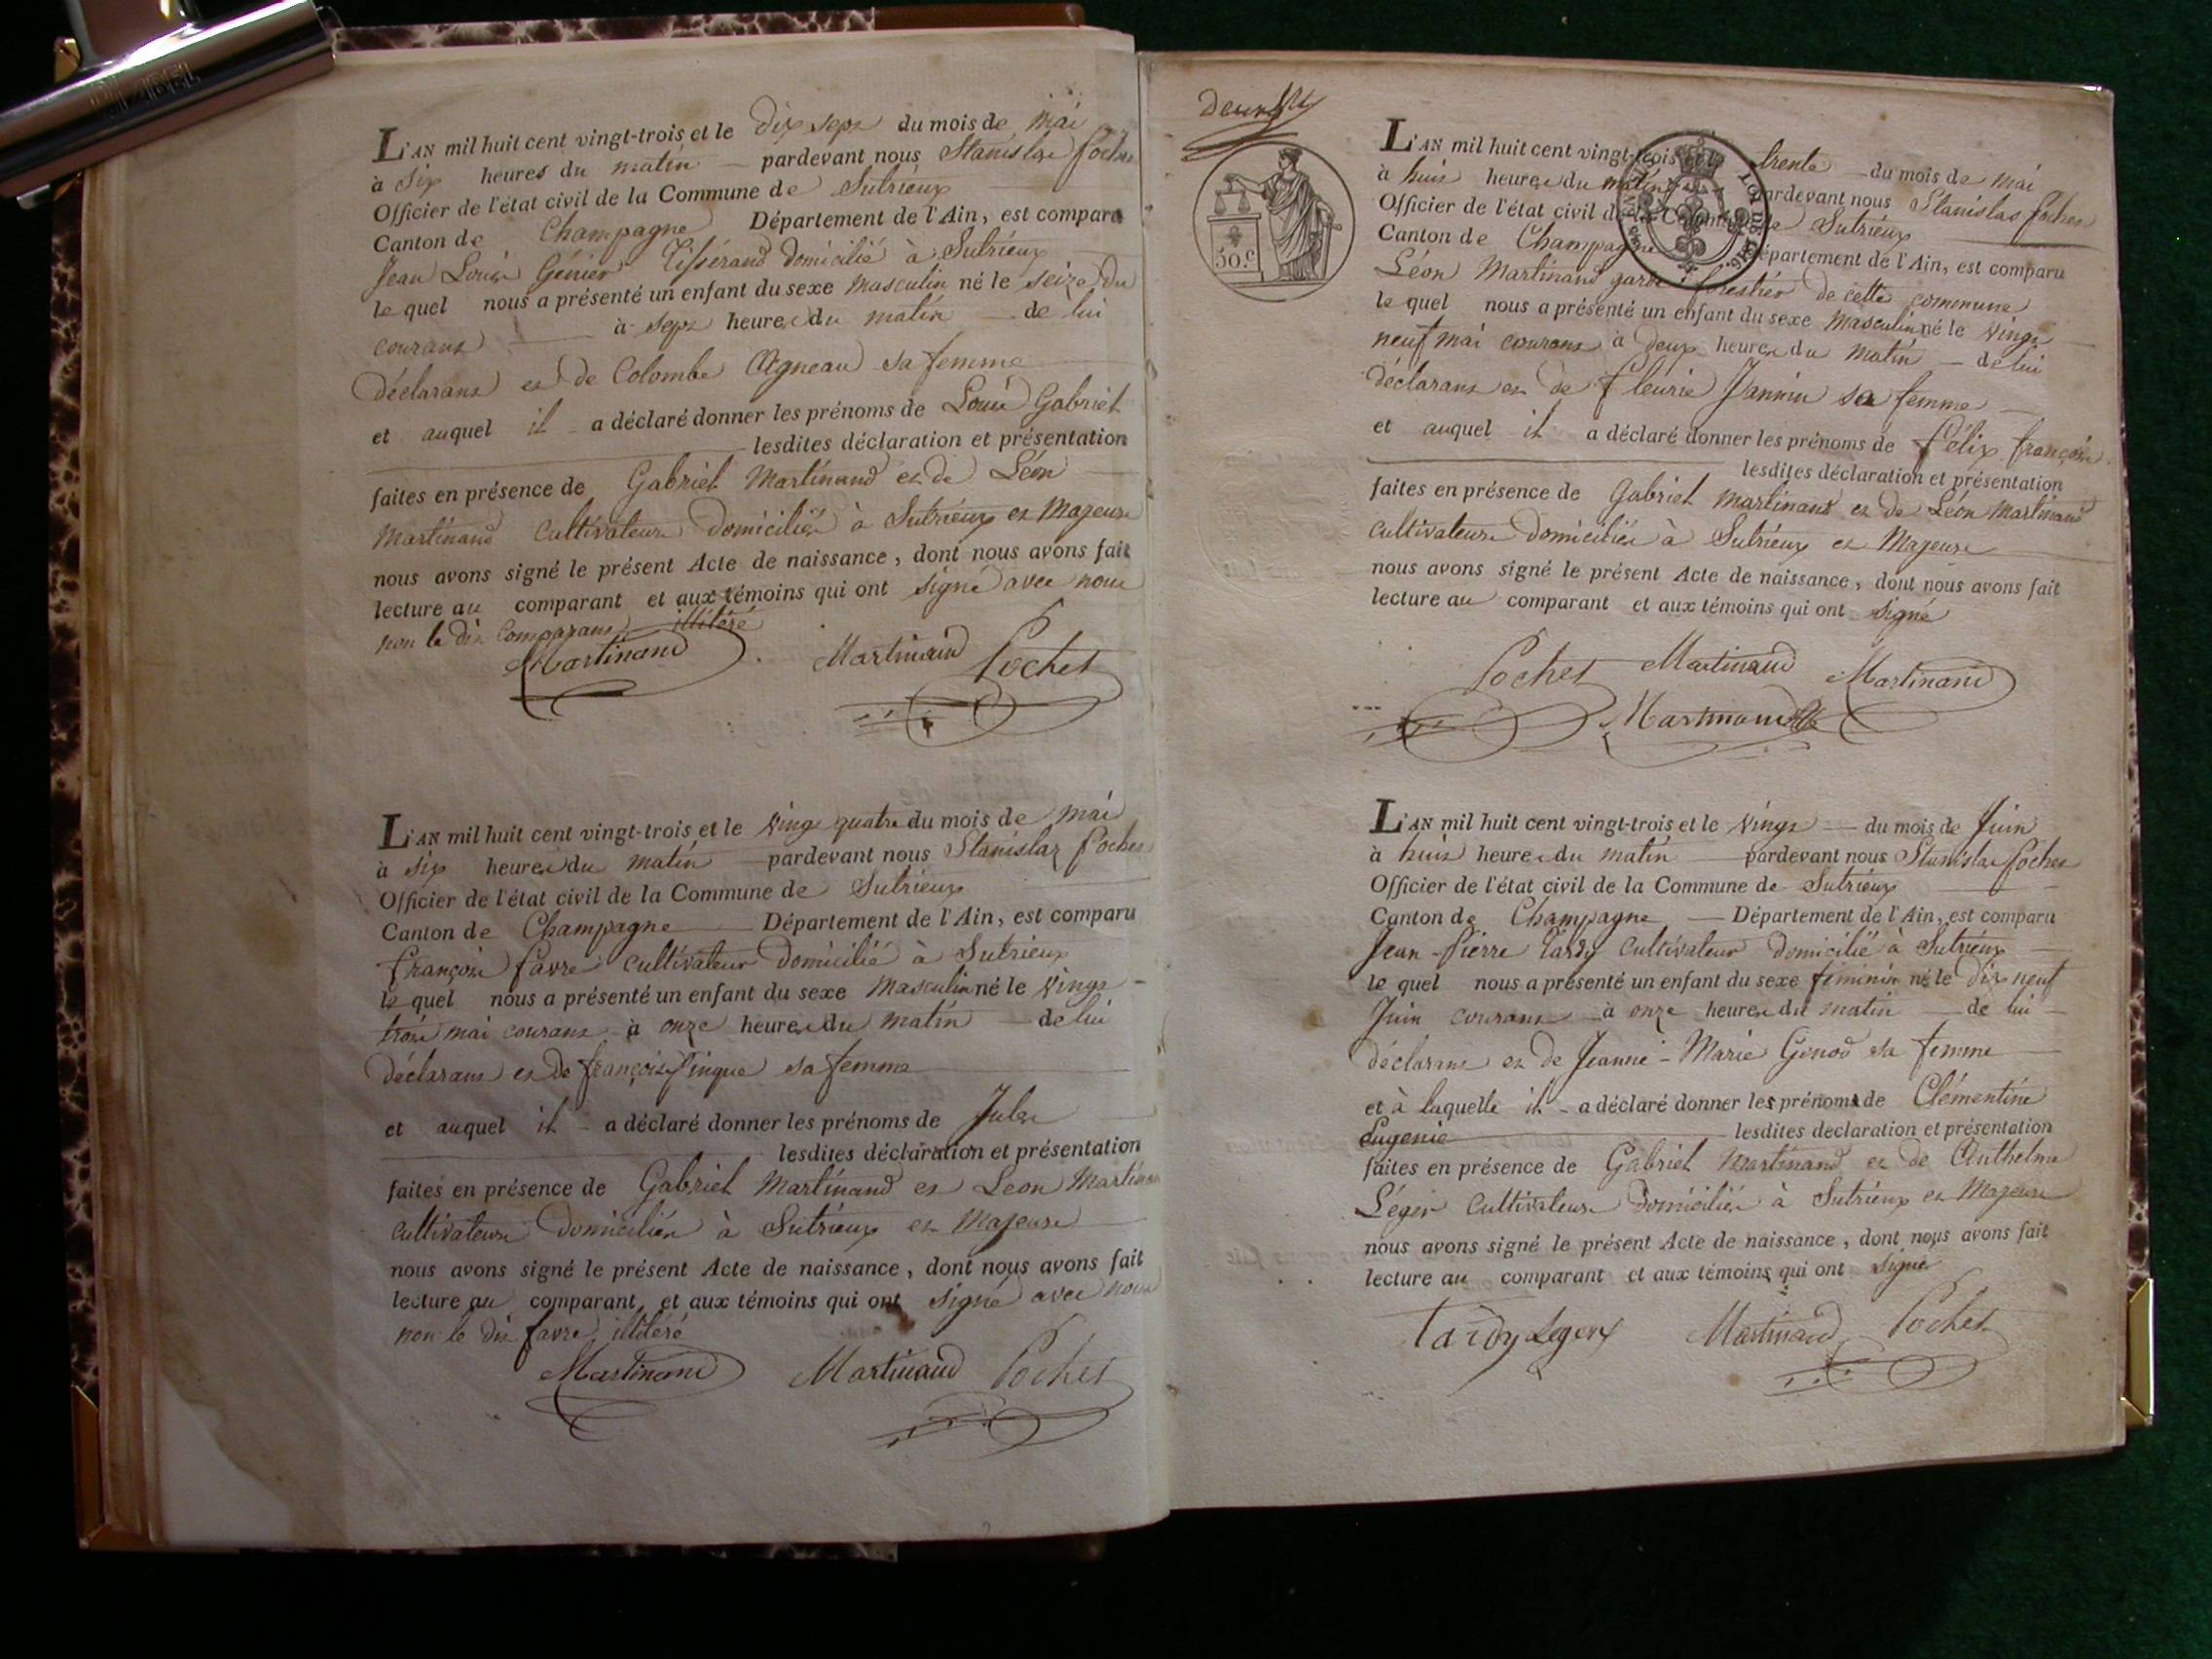 L'AN mil huit cent vingt-trois et le dix sept du mois de mai
à six heures du matin pardevant nous Stanislas Pochet
Officier de l'état civil de la Commune de Sutrieux
Canton de Champagne Département de l'Ain, est comparu
Jean Louis Génier Tisserand domicilié à Sutrieux
le quel nous a présenté un enfant du sexe masculin né le seize du
courant à sept heures du matin de lui
déclarant et de Colombe Agneau sa femme
et auquel il a déclaré donner les prénoms de Louis Gabriel
lesdites déclaration et présentation
faites en présence de Gabriel Martinand et de Léon
Martinand cultivateurs domiciliés à Sutrieux et Majeurs
nous avons signé le présent Acte de naissance, dont nous avons fait
lecture au comparant et aux témoins qui ont signé avec nous
non le dit comparant illitéré
Martinand Martinand Pochet
L'AN mil huit cent vingt-trois et le vingt quatre du mois de mai
à six heures du matin pardevant nous Stanislas Pochet
Officier de l'état civil de la Commune de Sutrieux
Canton de Champagne Département de l'Ain, est comparu
françois favre cultivateur domicilié à Sutrieux
le quel nous a présenté un enfant du sexe masculin né le vingt
trois mai courant à onze heures du matin de lui
déclarant et de françoise Pingue sa femme
et auquel il a déclaré donner les prénoms de Jules
lesdites déclaration et présentation
faites en présence de Gabriel Martinand et Leon Martinand
cultivateurs domiciliés à Sutrieux et Majeurs
nous avons signé le présent Acte de naissance, dont nous avons fait
lecture au comparant, et aux témoins qui ont signé avec nous
non le dit favre illitéré
Martinand Martinand Pochet
50.c
L'AN mil huit cent vingt-trois et le trente du mois de mai
à huit heures du matin pardevant nous Stanislas Pochet
Officier de l'état civil de la Commune de Sutrieux
Canton de Champagne Département de l'Ain, est comparu
Léon Martinand garde forestier de cette commune
le quel nous a présenté un enfant du sexe masculin né le vingt
neuf mai courant à deux heures du matin de lui
déclarant et de fleurie Jannin sa femme
et auquel il a déclaré donner les prénoms de félix françois
lesdites déclaration et présentation
faites en présence de Gabriel martinand et de Léon Martinand
cultivateurs domiciliés à Sutrieux et Majeurs
nous avons signé le présent Acte de naissance, dont nous avons fait
lecture au comparant et aux témoins qui ont signé
Pochet Martinand Martinand
Martinand
L'AN mil huit cent vingt-trois et le vingt du mois de Juin
à huit heures du matin pardevant nous Stanislas Pochet
Officier de l'état civil de la Commune de Sutrieux
Canton de Champagne Département de l'Ain, est comparu
Jean-Pierre Tardy cultivateur domicilié à Sutrieux
le quel nous a présenté un enfant du sexe féminin né le dix neuf
Juin courant à onze heures du matin de lui
déclarant et de Jeanne-Marie Genod sa femme
et à laquelle il a déclaré donner les prénoms de Clémentine
Eugenie lesdites declaration et présentation
faites en présence de Gabriel Martinand et de Anthelme
Léger cultivateurs domiciliés à Sutrieux et Majeurs
nous avons signé le présent Acte de naissance, dont nous avons fait
lecture au comparant et aux témoins qui ont signé
Tardy Leger Martinand Pochet